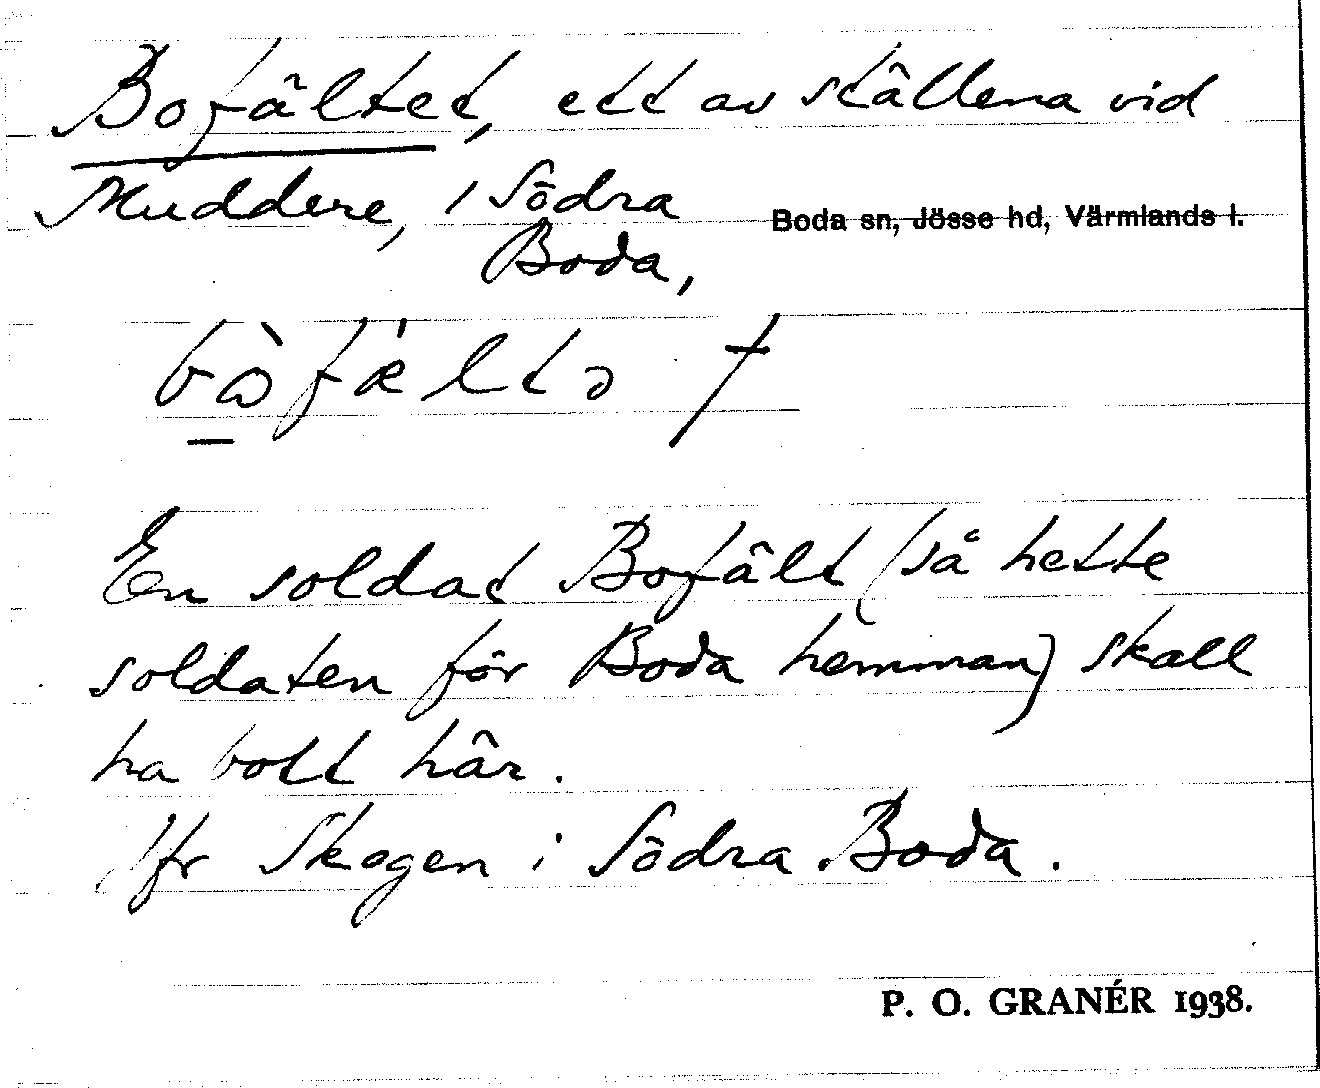 Bofältet, ett av ställena vid
Muddere, i Södra
Boda sn, Jösse hd, Värmlands l.
Boda,
En soldat Bofält (så hette
soldaten för Boda hemman) skall
ha bott här.
Jfr Skogen i Södra Boda.
P. O. GRANÉR 1938.